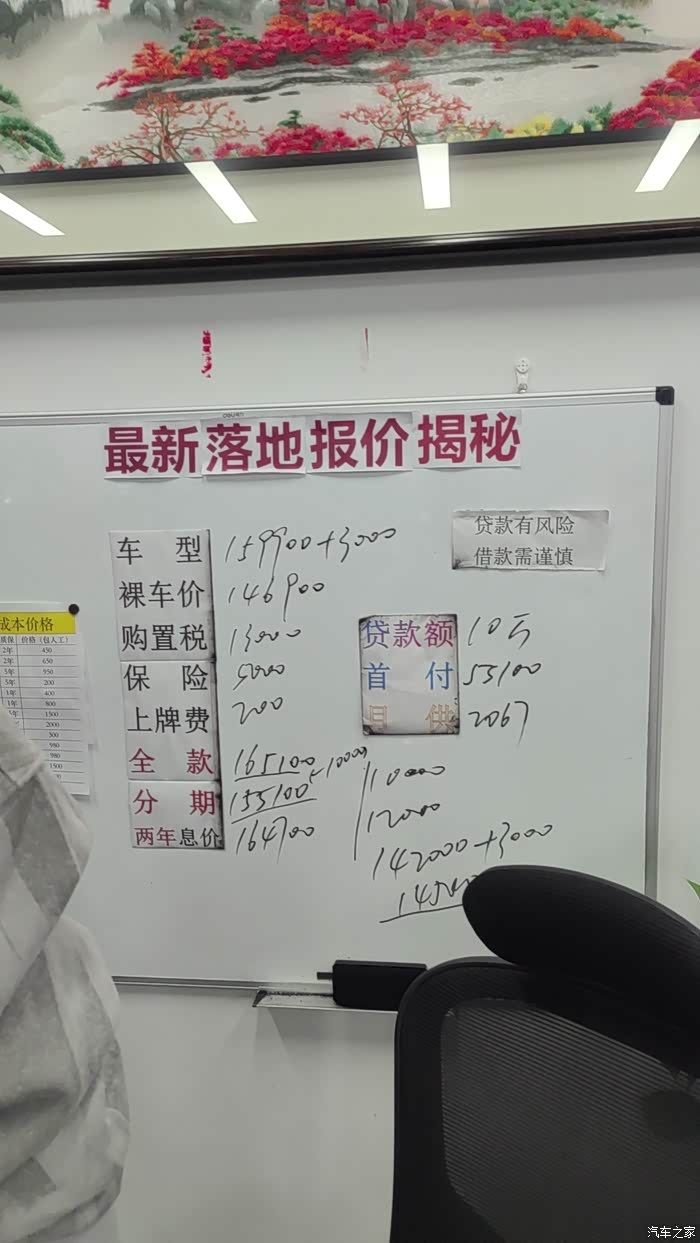 最新落地报价揭秘
贷款有风险
借款需谨慎
车型 159900+3000
裸车价 146900
购置税 13000
保险 5000
上牌费 200
全款 165100
-10000
分期 155100
两年息价 164700
贷款额 10万
首付 55100
月供 2067
10000
12000
142000+3000
成本价格
质保 价格(包人工)
2年 450
2年 650
5年 950
5年 200
1年 400
1年 800
1500
2000
300
980
980
1500
汽车之家